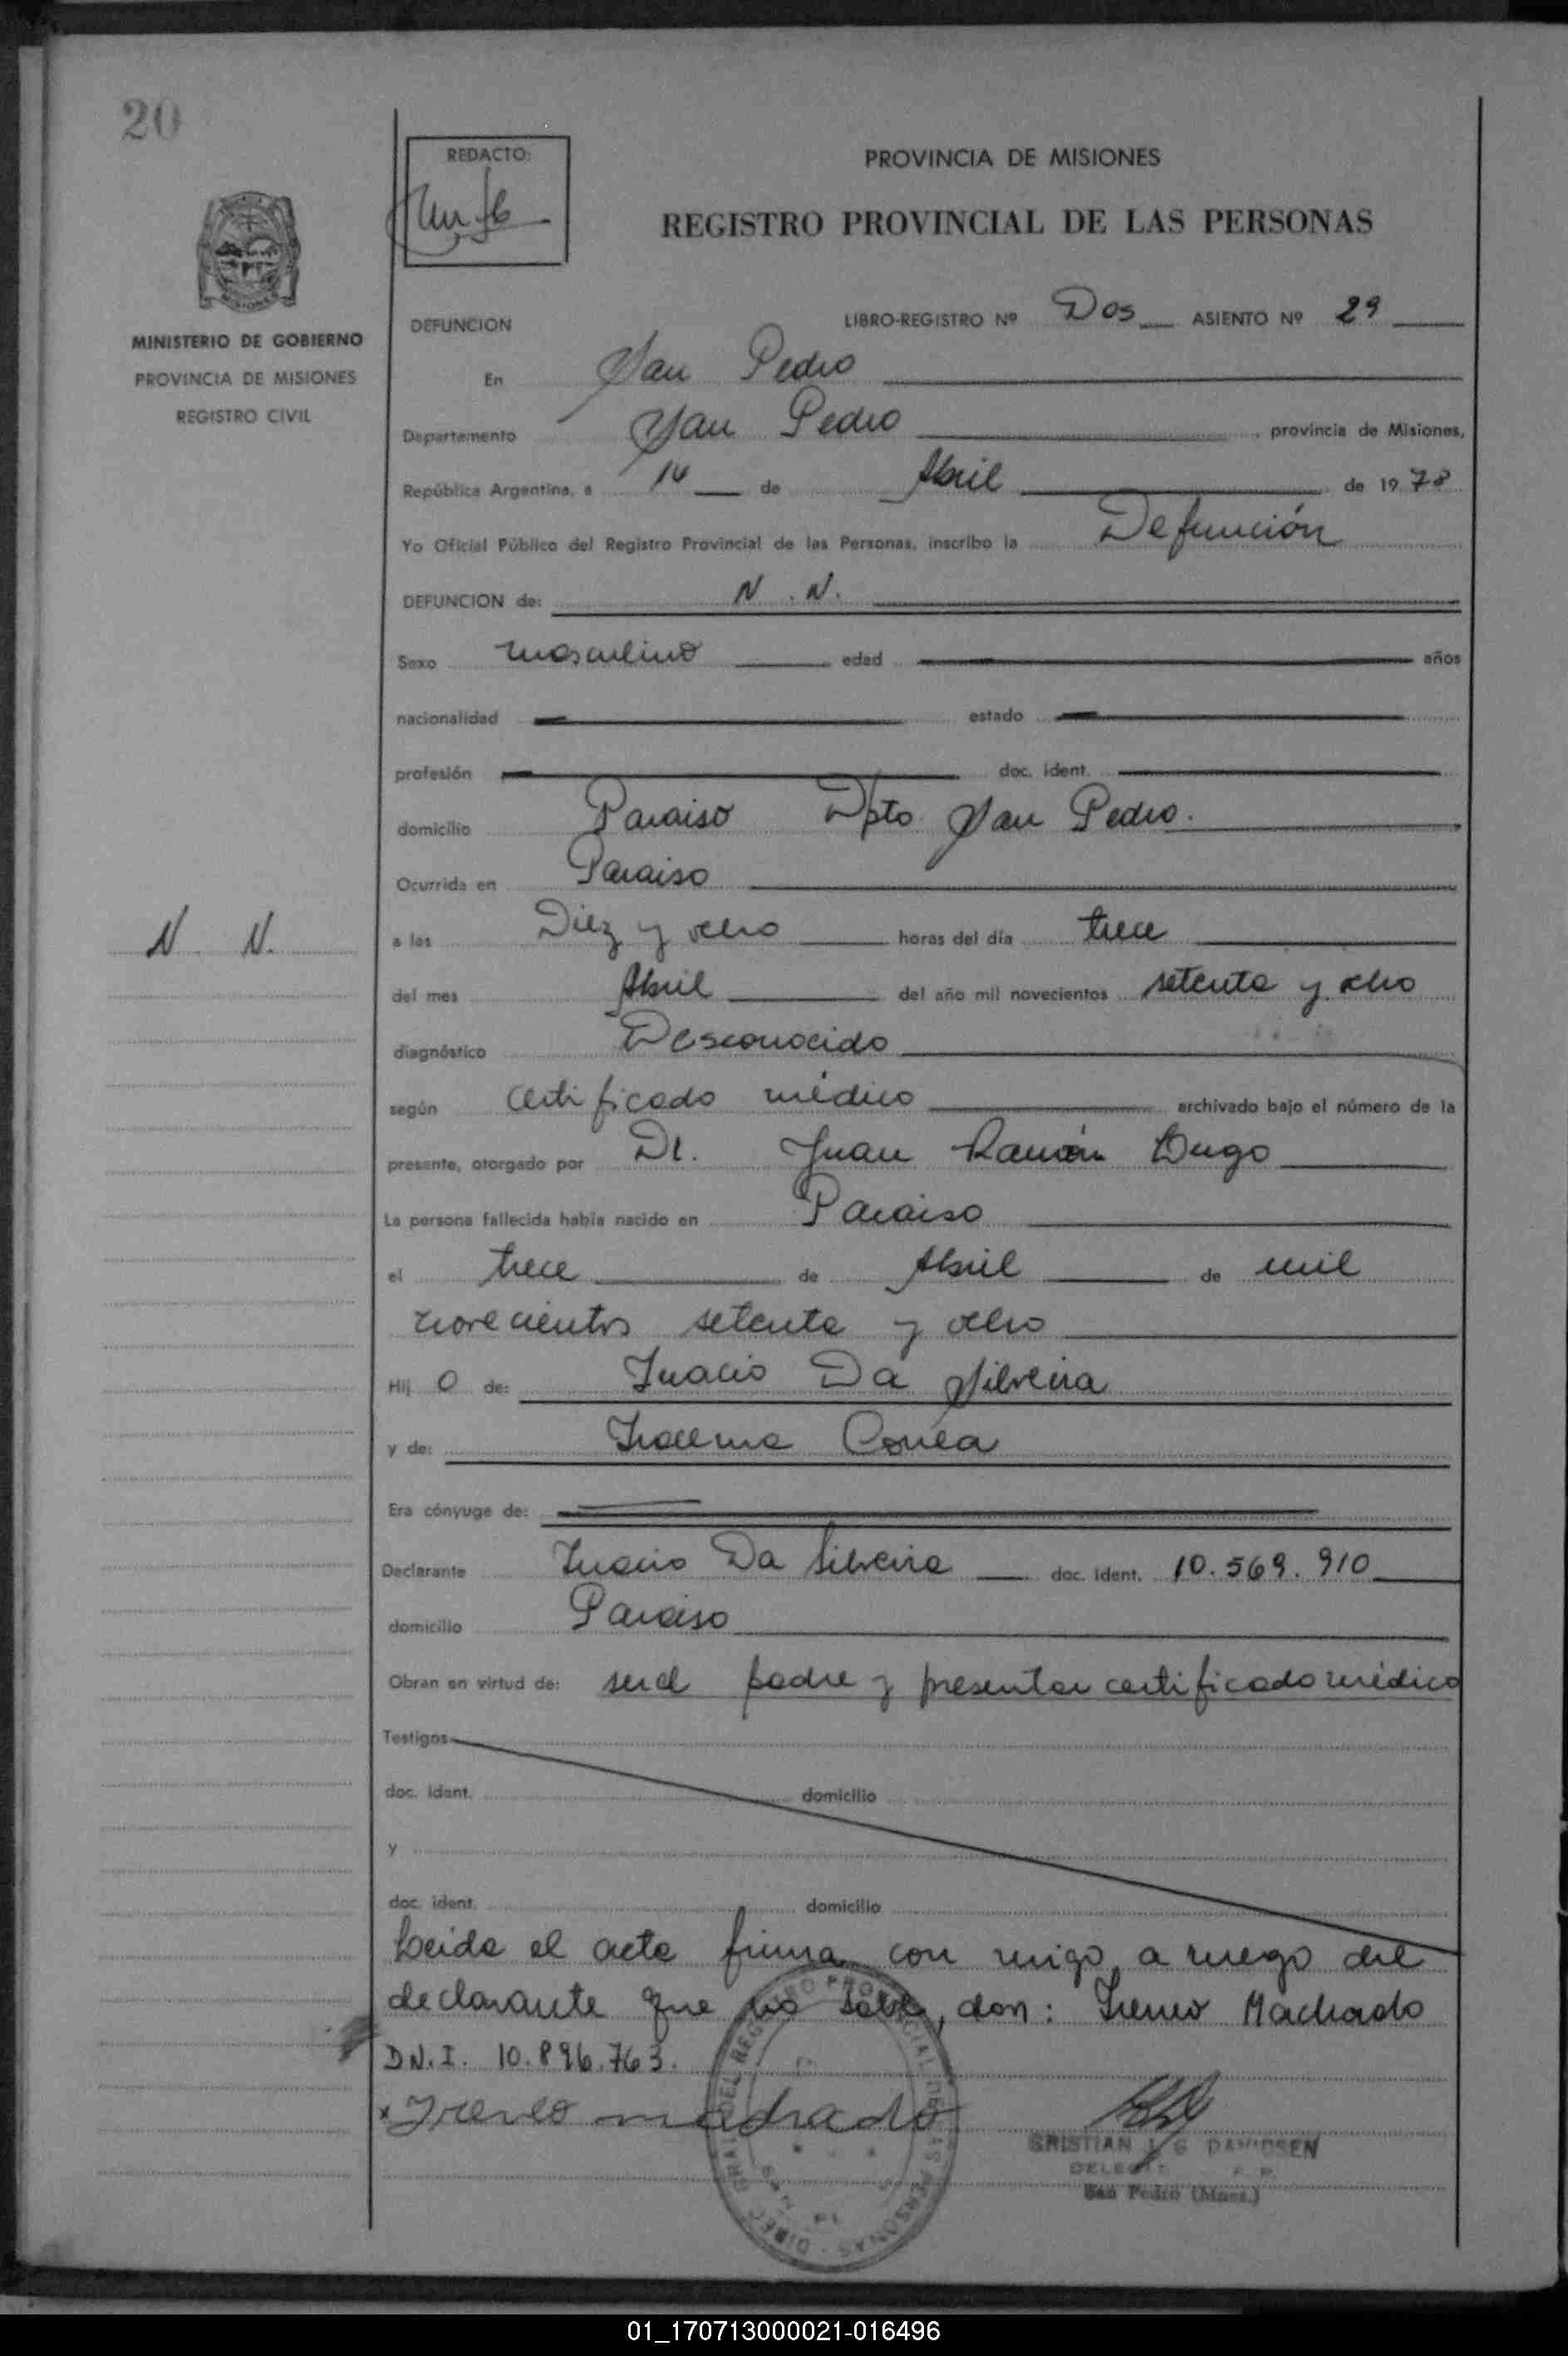 20
REDACTO:
PROVINCIA DE MISIONES
REGISTRO PROVINCIAL DE LAS PERSONAS
MINISTERIO DE GOBIERNO
PROVINCIA DE MISIONES
REGISTRO CIVIL
DEFUNCION LIBRO-REGISTRO Nº Dos ASIENTO Nº 29
En San Pedro
Departamento San Pedro, provincia de Misiones,
República Argentina, a 14 de Abril de 1978
Yo Oficial Público del Registro Provincial de las Personas, inscribo la Defunción
DEFUNCION de: N. N.
Sexo masculino edad años
nacionalidad estado
profesión doc. ident.
domicilio Paraiso Dpto San Pedro.
Ocurrida en Paraiso
N. N.
a las Diez y ocho horas del día trece
del mes Abril del año mil novecientos setenta y ocho
diagnóstico Desconocido
según certificado médico archivado bajo el número de la
presente, otorgado por Dr. Juan Ramón
La persona fallecida había nacido en Paraiso
el trece de Abril de mil
novecientos setenta y ocho
Hij o de: Inacio Da Silveira
y de: Iracema Correa
Era cónyuge de:
Declarante Inacio Da Silveira doc. ident. 10.569.910
domicilio Paraiso
Obran en virtud de: ser el padre y presentar certificado médico
Testigos
doc. ident. domicilio
y
doc. ident. domicilio
Leida el acta firma con migo, a ruego del
declarante que no sabe, don: Ireneo Machado
D.N.I. 10.896.763.
x Ireneo machado
CRISTIAN G DAVIDSEN
San Pedro (Mnes.)
01_170713000021-016496